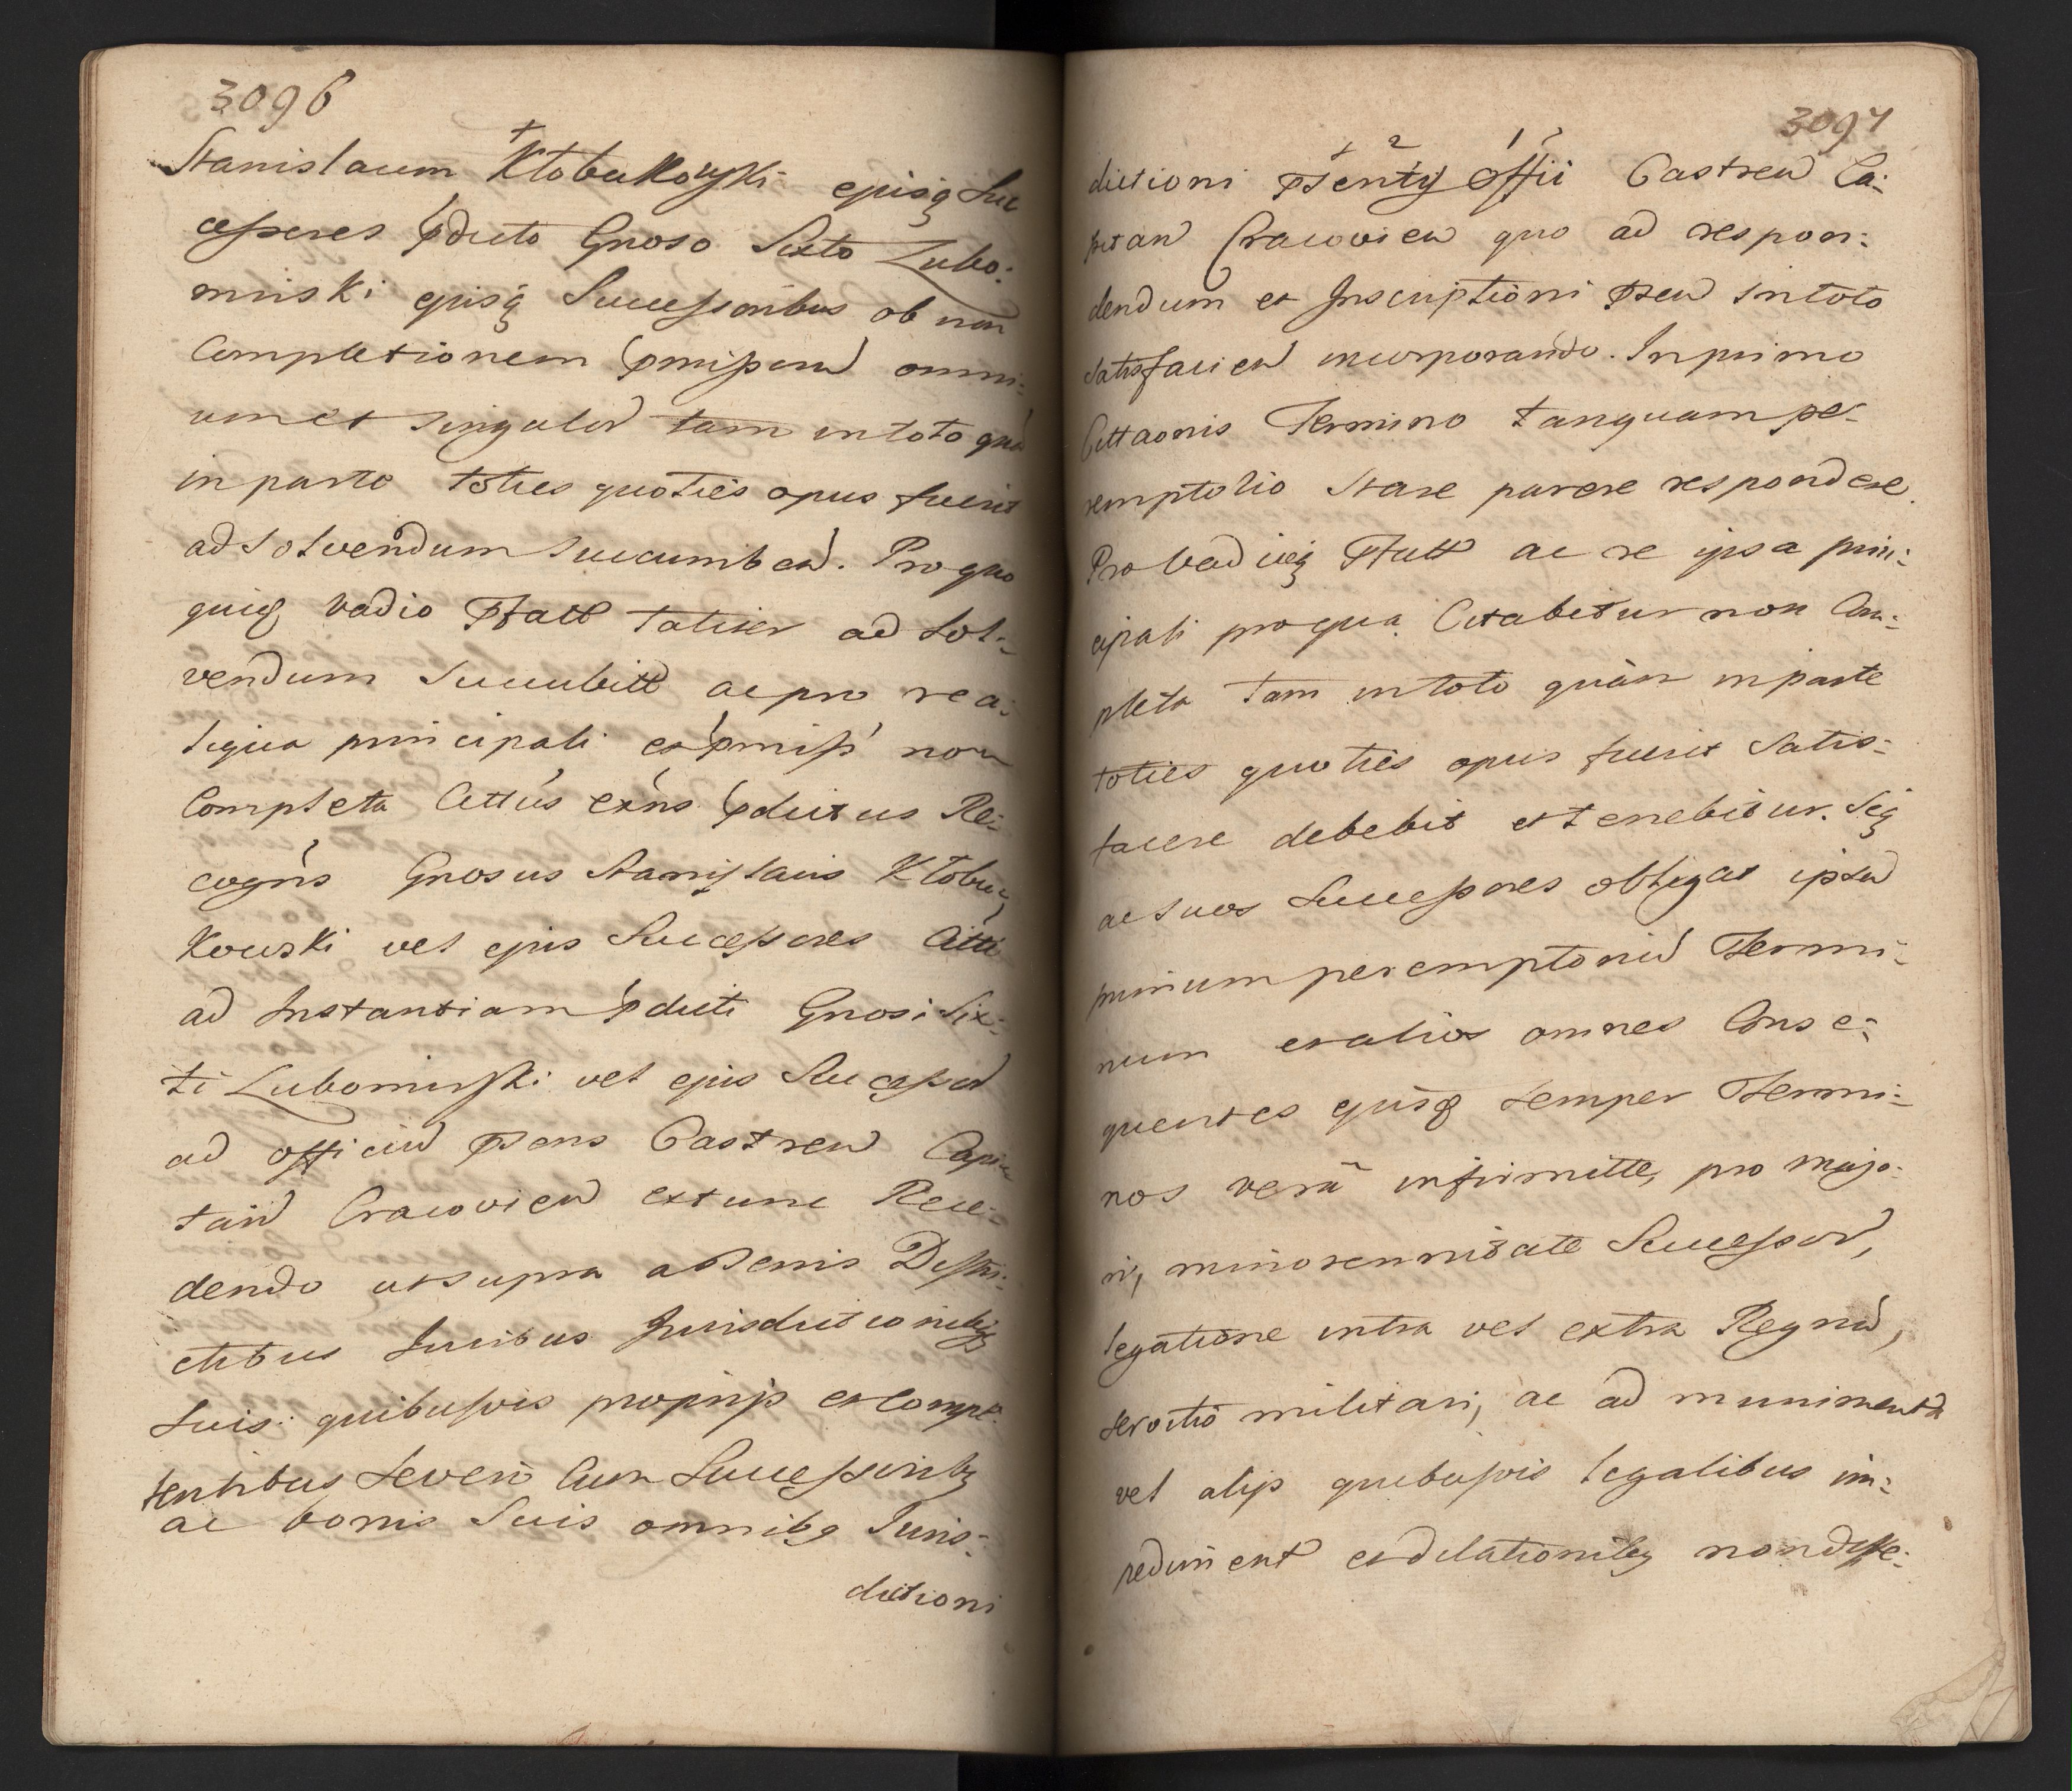 3096
Stanislaum Kłobukowski ejusq Suc
cessores pdicto Gnoso Sixto Lubo:
mirski ejusq Successoribus ob non
Completionem pmissoru omni:
um et singulor tam in toto qua
in parte toties quoties opus fuerit
ad solvendum succumben. Pro quo
quiq vadio Pfatt taliter ad sol:
vendum Succubitt ac pro re a:
liqua principali ex pmiss non
Completa Cittus exns pdictus Re:
cogns Gnosus Stanislaus Kłobu:
kowski vel ejus Successores Citti
ad Instantiam pdicti Gnosi Six:
ti Lubomirski vel ejus Successor
ad officiu Psens Castren Capi:
tan Cracovien extunc Rece:
dendo ut supra a Terris Distri:
ctibus Juribus Jurisdictionibq
suis quibusvis proprijs et Compe:
tentibus seven cum Successoribq
ac bonis Suis omnibq Juris:
dictioni
3097
dictioni Psenty Offii Castren Ca:
pitan Cracovien quo ad respon:
dendum et Inscriptioni Psen in toto
satisfacien incorporando. In primo
Cittaonis Termino tanquam pe:
remptorio stare parere respondere.
Pro Vadijq Pfatt ac re ipsa prin:
cipali pro qua Citabitur non Com:
pleta tam in toto quàm in parte
toties quoties opus fuerit Satis:
facere debebit et tenebitur. Seq
ac suos Successores obligat ipsu
primum peremptoriu Termi:
num et alios omnes Conse:
quentes ejusq semper Termi:
nos vera infirmitte, pro majo:
ri, minorennitate Successor,
legatione intra vel extra Regnu,
servitio militari, ac ad munimenta
vel alijs quibusvis legalibus im:
pediment et dilationibq non diffe: